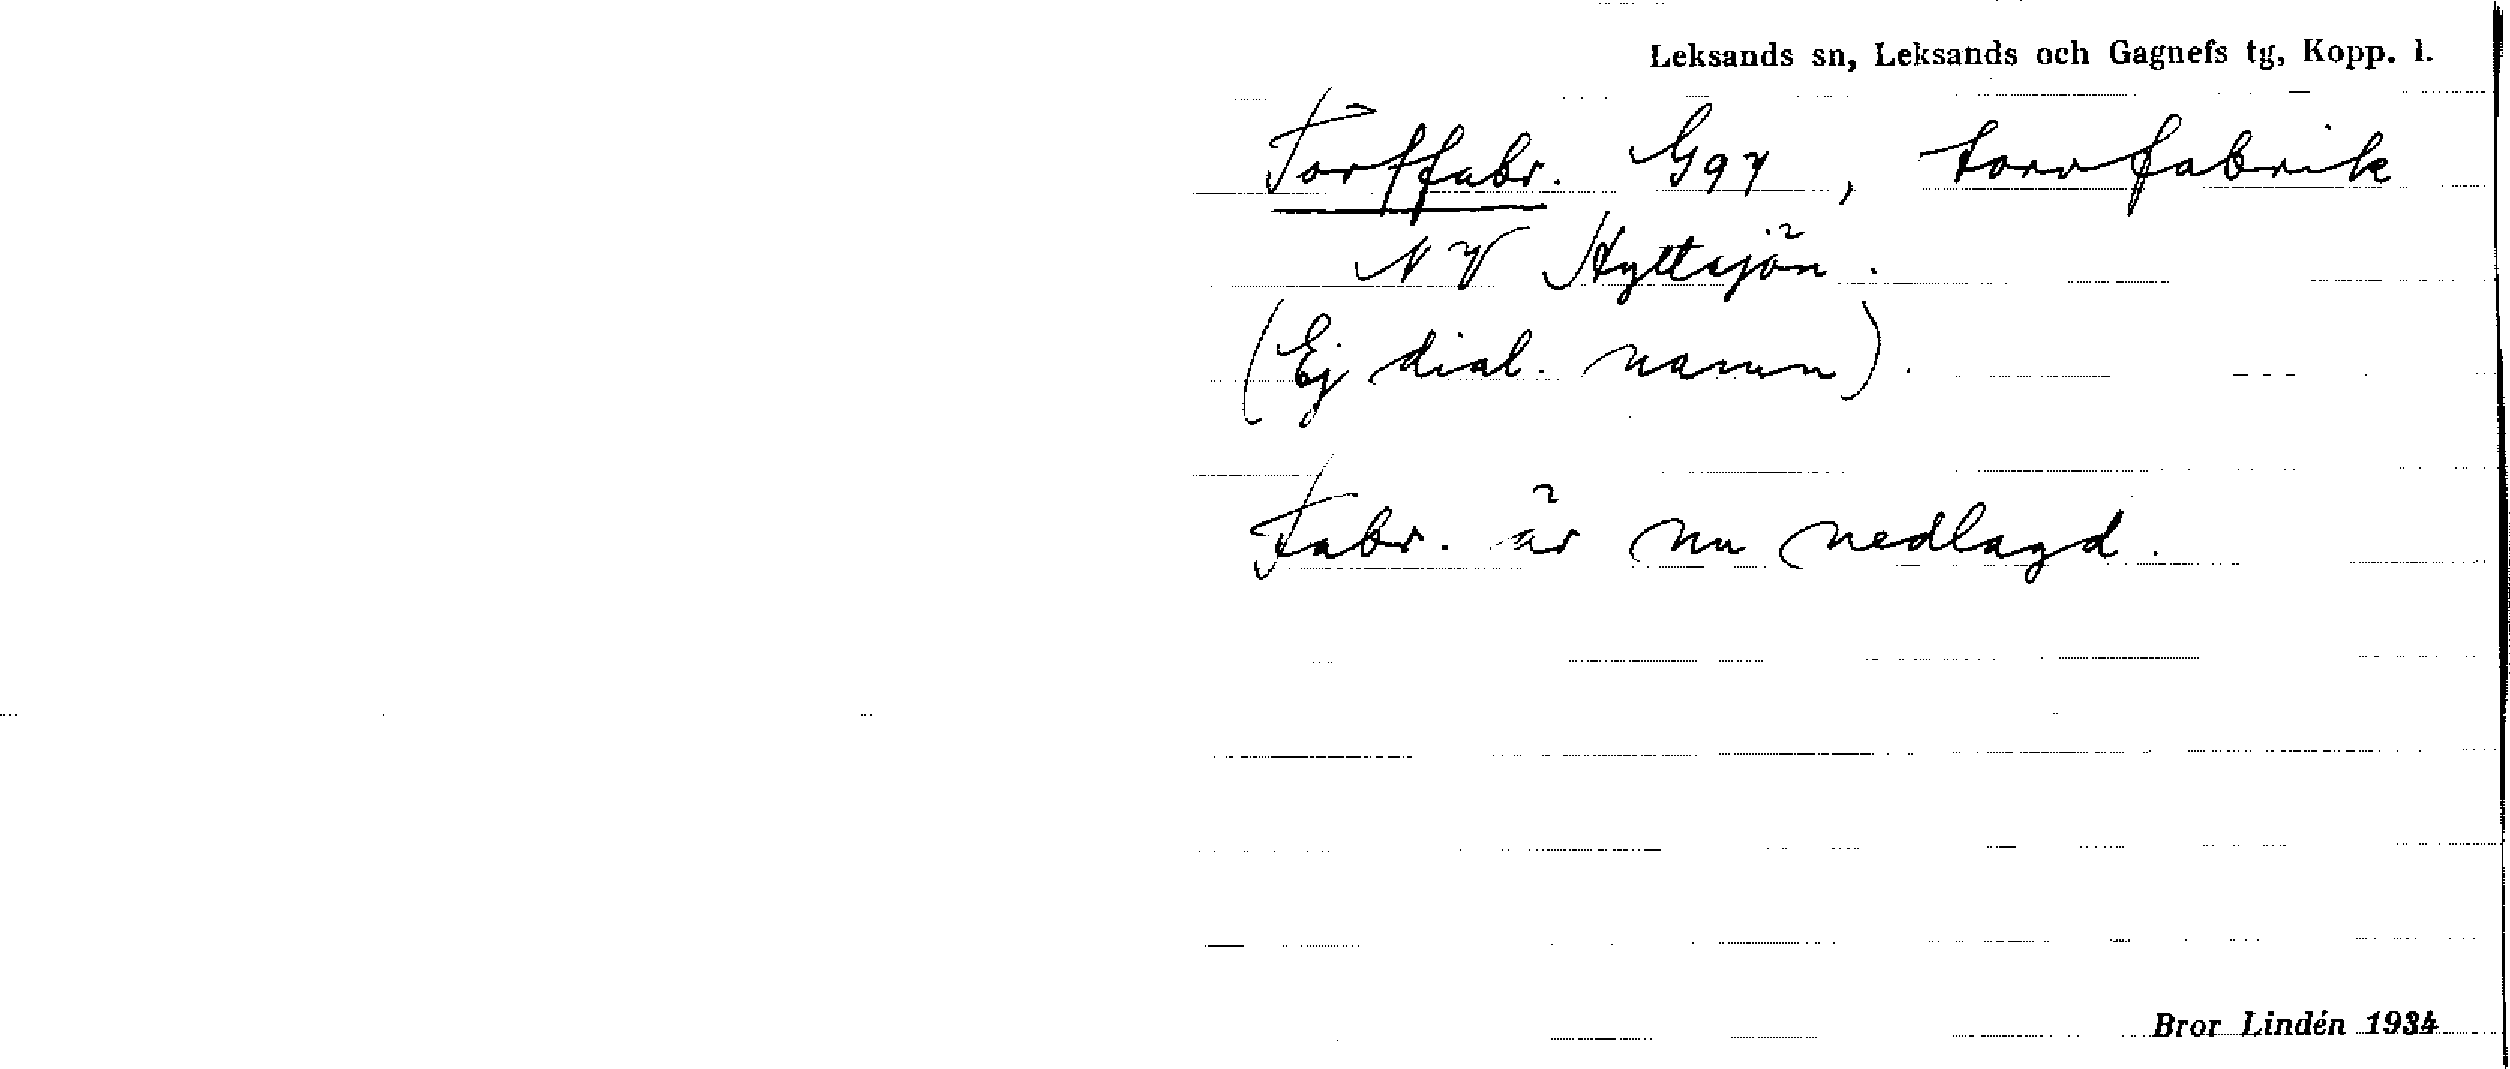 Leksands sn, Leksands och Gagnefs tg, Kopp. l.
Torffabr. Gqy, torvfabrik
NV Hyttsjön.
(Ej dial. namn).
Fabr. är nu nedlagd.
Bror Lindén 1934